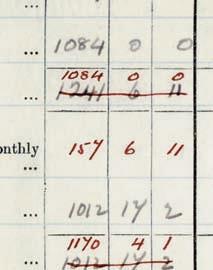 ... 1084 0 0
1084 0 0
... 1241 6 11
onthly 157 6 11
...
... 1012 17 2
1170 4 1
... 1012 17 2